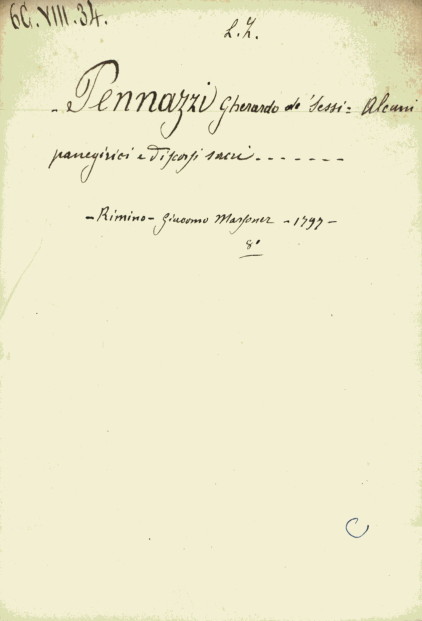 6C.VIII.34.
L.Z.
- Pennazzi Gherardo de' Sessi = Alcuni
panegirici e discorsi sacri - - - - - - -
- Rimino - Giacomo Marsoner - 1797 -
8°
C